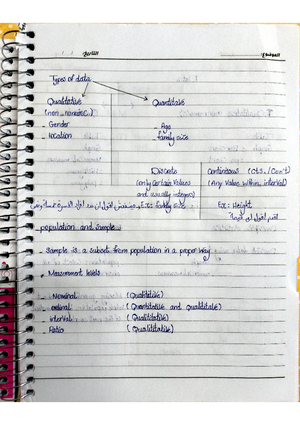 Types of data
Qualitative Quantitative
(non_numeric)
- Gender - Age
- location family size
Discrete continuous (Cts./Con't)
(only certain values (Any Value within interval)
and usually integers)
Ex: family size Ex: Height
- population and sample
- Sample is a subset from population in a proper way
- Measurement levels
- Nominal (Qualitative)
- ordinal (Quantitative and Qualitative)
- interval
- Ratio